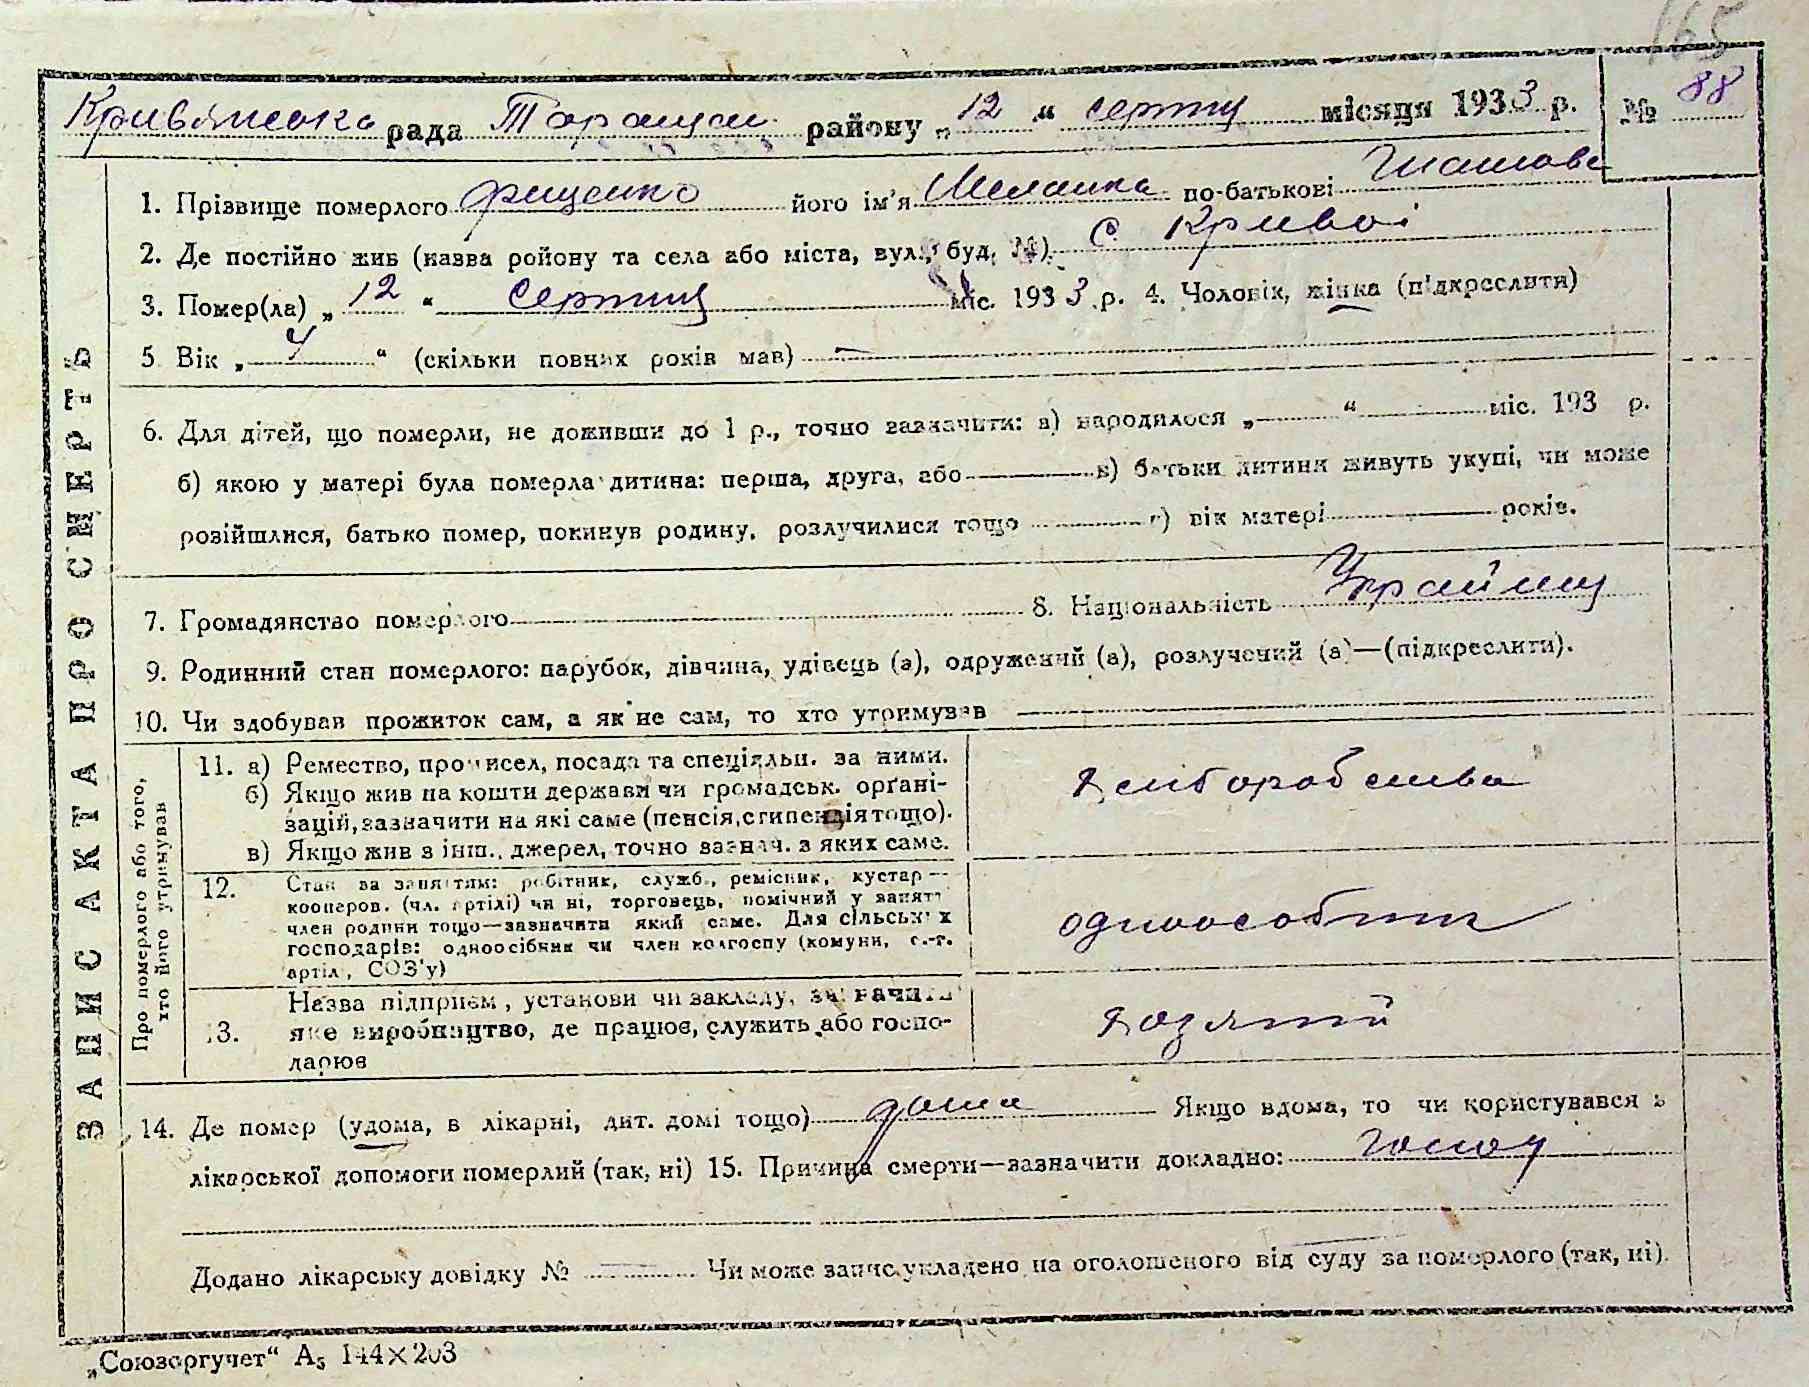 165
Кривянська рада Таращан. району „12“ серпня місяця 1933 р. № 88
ЗАПИС АКТА ПРО СМЕРТЬ
1. Прізвище померлого Фищенко його ім'я Меланка по-батькові
2. Де постійно жив (назва ройону та села або міста, вул., буд. №) с. Кривої
3. Помер(ла) „12“ серпня міс. 1933 р. 4. Чоловік, жінка (підкреслити)
5. Вік „4“ (скільки повних років мав) —
6. Для дітей, що померли, не доживши до 1 р., точно зазначити: а) народилося „—“ міс. 193 р.
б) якою у матері була померла дитина: перша, друга, або — в) батьки дитини живуть укупі, чи може
розійшлися, батько помер, покинув родину, розлучилися тощо — г) вік матері — років.
7. Громадянство померлого — 8. Національність Україня
9. Родинний стан померлого: парубок, дівчина, удівець (а), одружений (а), розлучений (а)—(підкреслити).
10. Чи здобував прожиток сам, а як не сам, то хто утримував —
Про померлого або того,
хто його утримував
11. а) Ремество, промисел, посада та спеціяльн. за ними.
б) Якщо жив на кошти держави чи громадськ. орґані-
зацій, зазначити на які саме (пенсія, стипендія тощо).
в) Якщо жив з інш. джерел, точно зазнач. з яких саме.
хліборобства
12. Стан за заняттям: робітник, служб., ремісник, кустар—
кооперов. (чл. артілі) чи ні, торговець, помічний у занятт
член родини тощо—зазначити який саме. Для сільських
господарів: одноосібник чи член колгоспу (комуни, с.-г.
артіл., СОЗ'у)
одноособник
13. Назва підприєм., установи чи закладу, зазначити
яке виробництво, де працює, служить або госпо-
дарює
хозяїн
14. Де помер (удома, в лікарні, дит. домі тощо) дома Якщо вдома, то чи користувався з
лікарської допомоги померлий (так, ні) 15. Причина смерти—зазначити докладно: голод
Додано лікарську довідку № — Чи може запис укладено на оголошеного від суду за померлого (так, ні).
„Союзоргучет“ А5 144×203